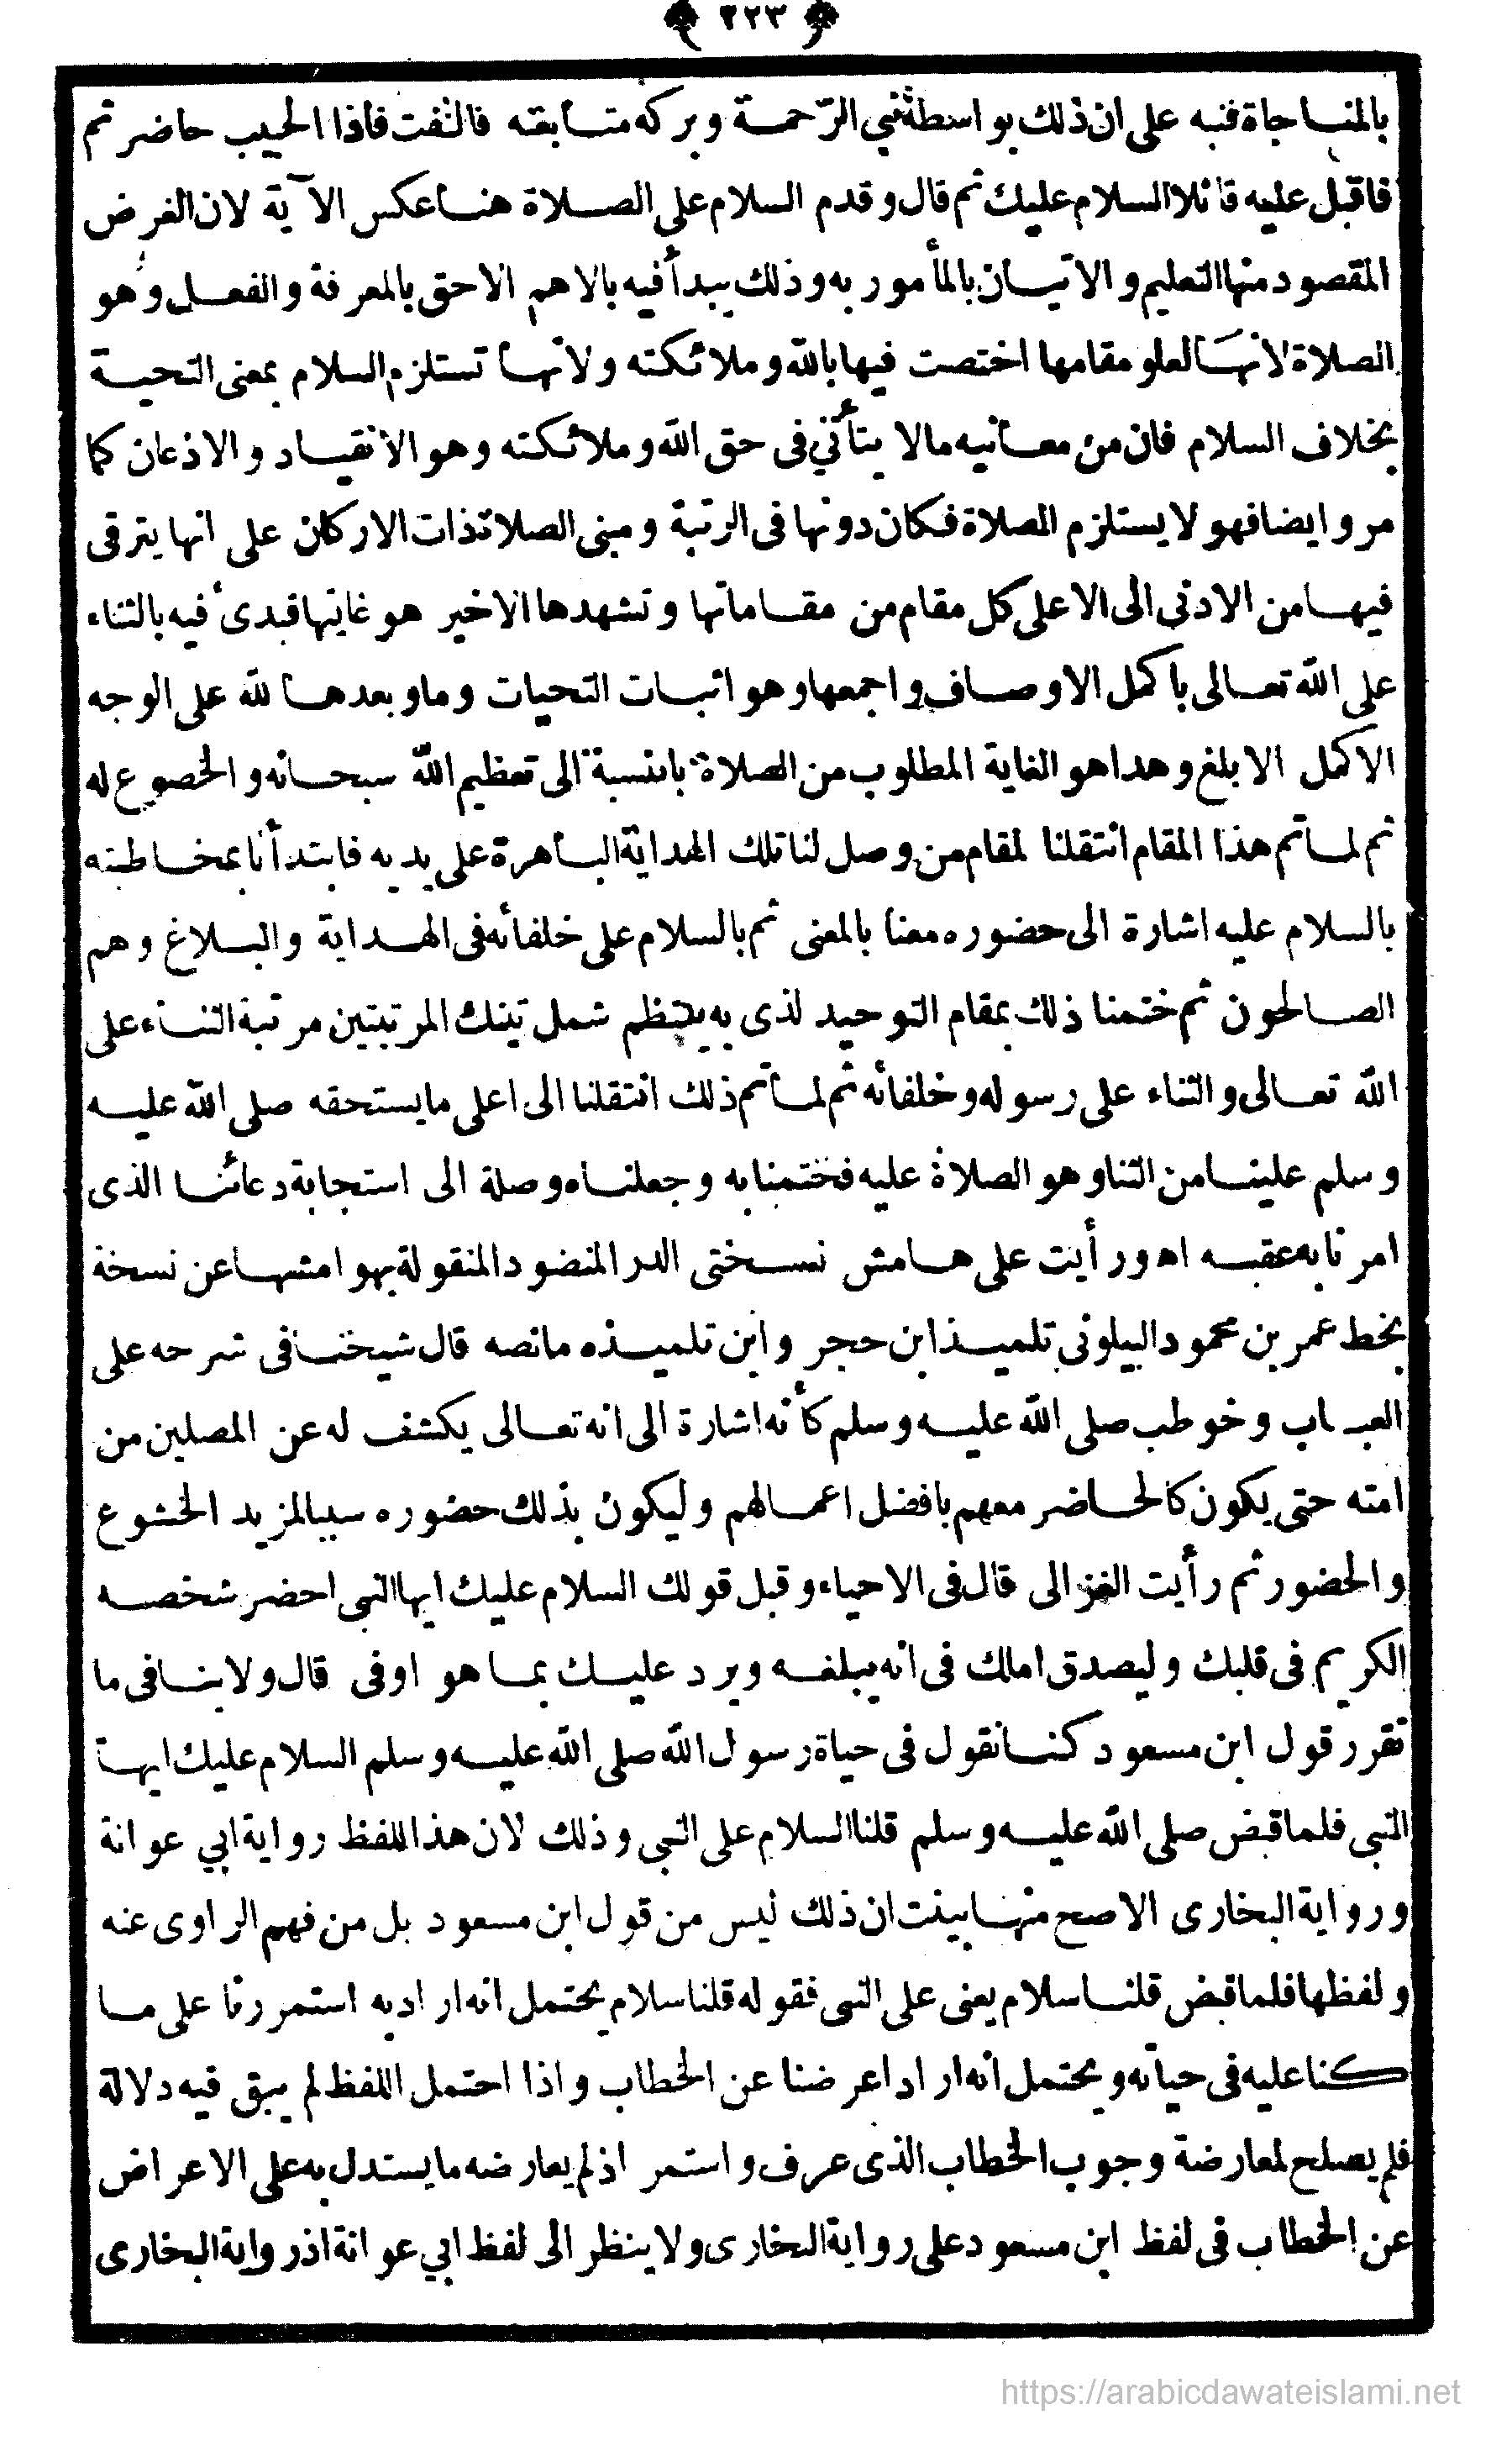 ﴿ ٢٢٣ ﴾
بالمناجاة فنبه على ان ذلك بواسطة نبي الرّحمة وبركة متابعته فالتفت فاذا الحبيب حاضر ثم
فاقبل عليه قائلا السلام عليك ثم قال وقدم السلام على الصلاة هنا عكس الآية لان الغرض
المقصود منها التعليم والاتيان بالمأمور به وذلك يبدأ فيه بالاهم الاحق بالمعرفة والفعل وهو
الصلاة لانها لعلو مقامها اختصت فيها بالله وملائكته ولانها تستلزم السلام بمعنى التحية
بخلاف السلام فان من معانيه مالا يتأتي في حق الله وملائكته وهو الانقياد والاذعان كما
مر وايضا فهو لا يستلزم الصلاة فكان دونها فى الرتبة ومبنى الصلاة ذات الاركان على انها يترقى
فيها من الادنى الى الاعلى كل مقام من مقاماتها وتشهدها الاخير هو غايتها فبدئ فيه بالثناء
على الله تعالى باكمل الاوصاف واجمعها وهو اثبات التحيات وما وبعدها لله على الوجه
الاكمل الابلغ وهدا هو الغاية المطلوب من الصلاة بالنسبة الى تعظيم الله سبحانه والخضوع له
ثم لما تم هذا المقام انتقلنا لمقام من وصل لنا تلك الهداية الباهرة على يديه فابتدأنا بمخاطبته
بالسلام عليه اشارة الى حضوره معنا بالمعنى ثم بالسلام على خلفائه فى الهداية والبلاغ وهم
الصالحون ثم ختمنا ذلك بمقام التوحيد لذى به ينتظم شمل تينك المرتبتين مرتبة الثناء على
الله تعالى والثناء على رسوله وخلفائه ثم لما تم ذلك انتقلنا الى اعلى ما يستحقه صلى الله عليه
وسلم علينا من الثنا وهو الصلاة عليه فختمنا به وجعلناه وصلة الى استجابة دعائنا الذى
امرنا به عقبه اه ورأيت على هامش نسختى الدر المنضود المنقولة بهوامشها عن نسخة
بخط عمر بن محمود البيلونى تلميذ ابن حجر وابن تلميذه مانصه قال شيخنا فى شرحه على
العباب وخوطب صلى الله عليه وسلم كأنه اشارة الى انه تعالى يكشف له عن المصلين من
امته حتى يكون كالحاضر معهم بافضل اعمالهم وليكون بذلك حضوره سببا لمزيد الخشوع
والحضور ثم رأيت الغزالى قال فى الاحياء وقبل قولك السلام عليك ايها النبى احضر شخصه
الكريم فى قلبك وليصدق املك فى انه يبلغه ويرد عليك بما هو اوفى قال ولا ينافى ما
تقرر قول ابن مسعود كنا نقول فى حياة رسول الله صلى الله عليه وسلم السلام عليك ايها
النبى فلما قبض صلى الله عليه وسلم قلنا السلام على النبى وذلك لان هذا اللفظ رواية ابي عوانة
ورواية البخارى الاصح منها بينت ان ذلك ليس من قول ابن مسعود بل من فهم الراوى عنه
ولفظها فلما قبض قلنا سلام يعنى على النبى فقوله قلنا سلام يحتمل انه اراد به استمررنا على ما
كنا عليه فى حياته ويحتمل انه اراد اعرضنا عن الخطاب واذا احتمل اللفظ لم يبق فيه دلالة
فلم يصلح لمعارضة وجوب الخطاب الذى عرف واستمر اذ لم يعارضه ما يستدل به على الاعراض
عن الخطاب فى لفظ ابن مسعود على رواية البخارى ولا ينظر الى لفظ ابي عوانة اذ رواية البخارى
https://arabicdawateislami.net